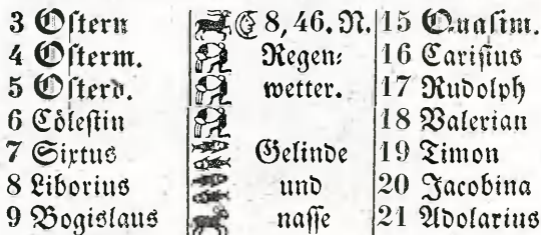 3 Ostern ☾ 8, 46. N. 15 Quasim.
4 Osterm. Regen⸗ 16 Carisius
5 Osterd. wetter. 17 Rudolph
6 Cölestin 18 Valerian
7 Sixtus Gelinde 19 Timon
8 Liborius und 20 Jacobina
9 Bogislaus nasse 21 Adolarius